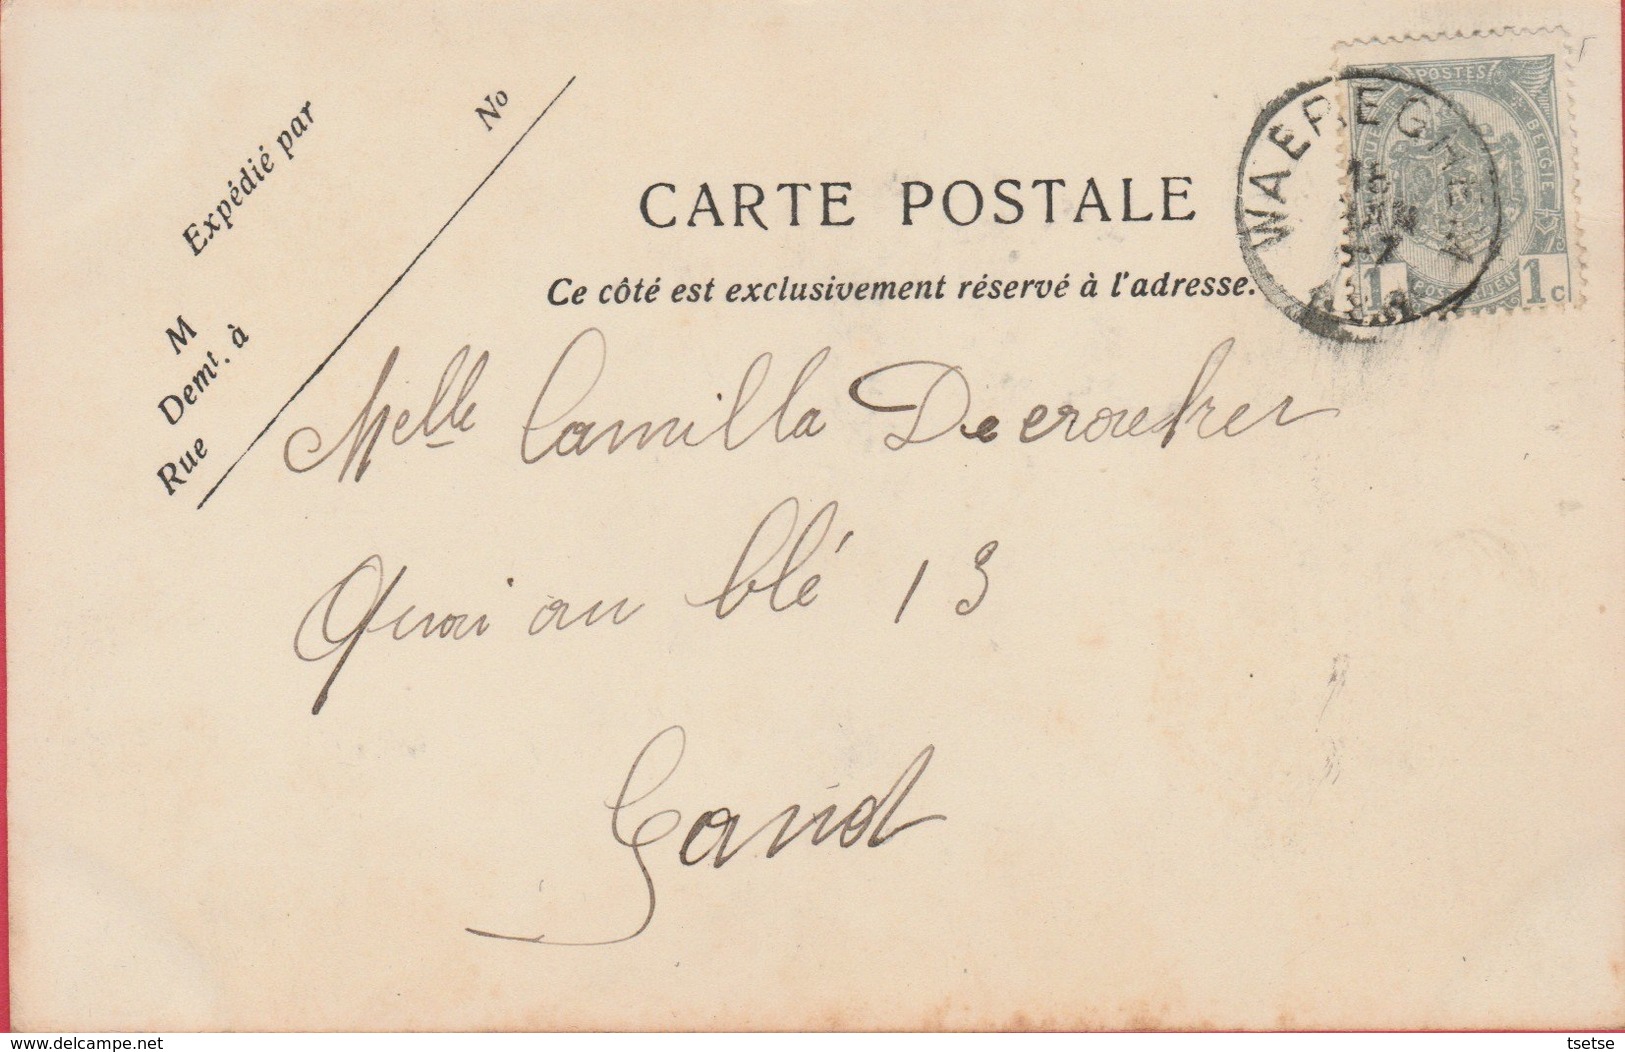 Expédié par
No
M
Demt. à
Rue
CARTE POSTALE
Ce côté est exclusivement réservé à l'adresse.
WAEREGHEM
POSTES
BELGIE
1 1c
Melle Camilla Decroubrer
Quai au blé 13
Gand
delcampe.net
tsetse